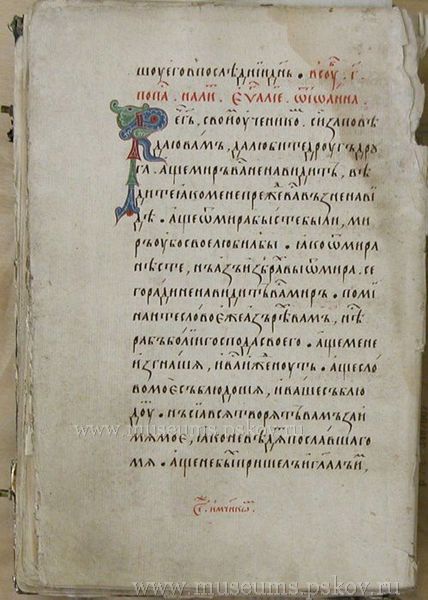 шоуеговпослѣднїидн҃ь · всоу҃ · і҃ ·
попа҃ · нали · еѵ҃аліе · ѿ іѡанна
Рег҃ь, своиⷨоученикоⷨ. сизаповѣ
даювамъ, далюбитедроугъдроу
га. ащемиръваⷭненавидитъ, вѣ
дитеꙗкоменепреж҃еваⷭвъзненави
дѣ. ащеѿмирабыстебыли, ми
ръоубосвоелюбилбы. ꙗкоѿмира
нѣсте, нъазъизбраⷯвыѿмира. се
горадиненавидитьваⷭмиръ. поми
наитесловоежеазърѣⷯвамъ, нѣⷭ
рабъболиигосподасвоего. ащемене
изгнашѧ, иваⷭиженоутъ. ащесло
вомоесъблюдошѧ, ивашесъблю
доуⷮ. нъсіавсѧтворѧтьвамъзаи
мѧмое, ꙗконевѣдѧⷮпославшаго
мѧ. ащенебыⷯпришелъиг҃лалъиⷨ,
ст҃ · имч҃нкѡⷨ
www.museums.pskov.ru
www.museums.pskov.ru